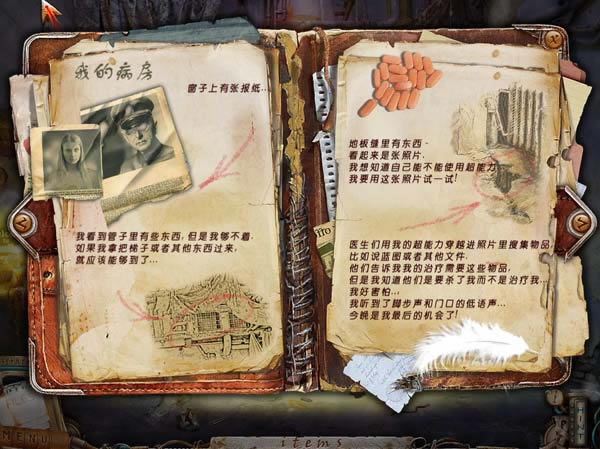 我的病房
窗子上有张报纸...
我看到管子里有些东西，但是我够不着.
如果我拿把梯子或者其他东西过来，
就应该能够到了...
地板缝里有东西-
看起来是张照片.
我想知道自己能不能使用超能力...
我要用这张照片试一试!
医生们用我的超能力穿越进照片里搜集物品，
比如说蓝图或者其他文件.
他们告诉我我的治疗需要这些物品，
但是我知道他们是要杀了我而不是治疗我...
我好害怕...
我听到了脚步声和门口的低语声...
今晚是我最后的机会了!
MENU
items
HINT